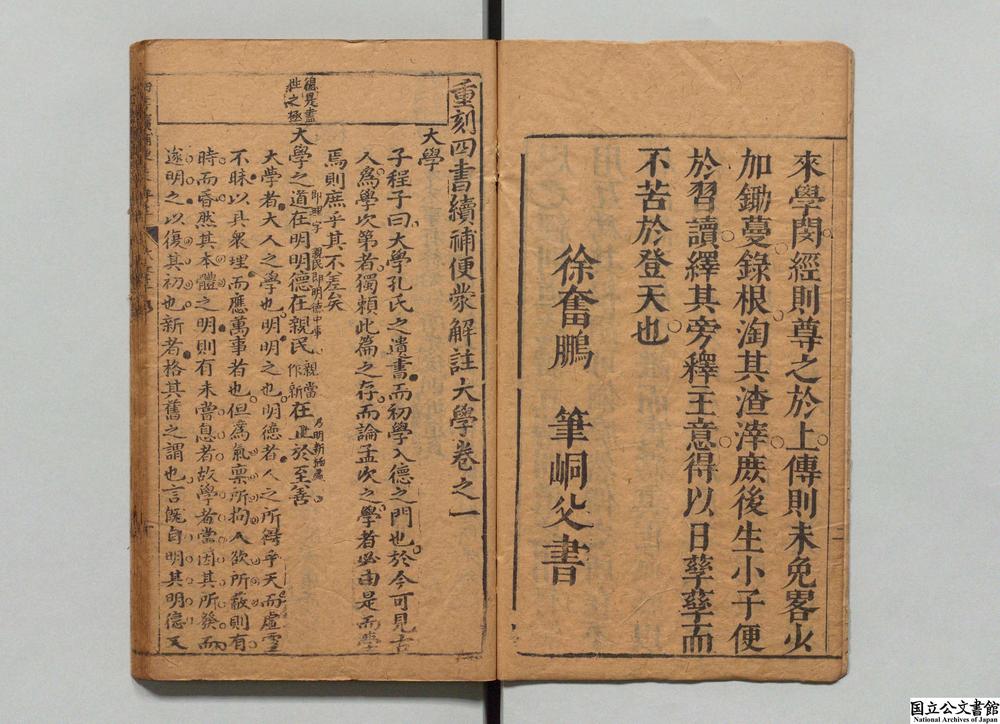 來學閔經則尊之於上傳則未免畧少
加鋤蔓錄根淘其渣滓庻後生小子便
於習讀繹其旁釋主意得以日孳孳而
不苦於登天也
徐奮鵬 筆峒父書
重刻四書續補便蒙解註大學卷之一
大學
子程子曰大學孔氏之遺書而初學入德之門也於今可見古
人爲學次第者獨賴此篇之存而論孟次之學者必由是而學
焉則庶乎其不差矣
德是盡
性之極
大學之道在明明德在親民在止於至善
即理字
親民即明德中事
親當
作新
大學者大人之學也明明之也明德者人之所得乎天而虛靈
不昧以具衆理而應萬事者也但爲氣禀所拘人欲所蔽則有
時而昏然其本體之明則有未嘗息者故學者當因其所發而
遂明之以復其初也新者格其舊之謂也言旣自明其明德又
国立公文書館
National Archives of Japan